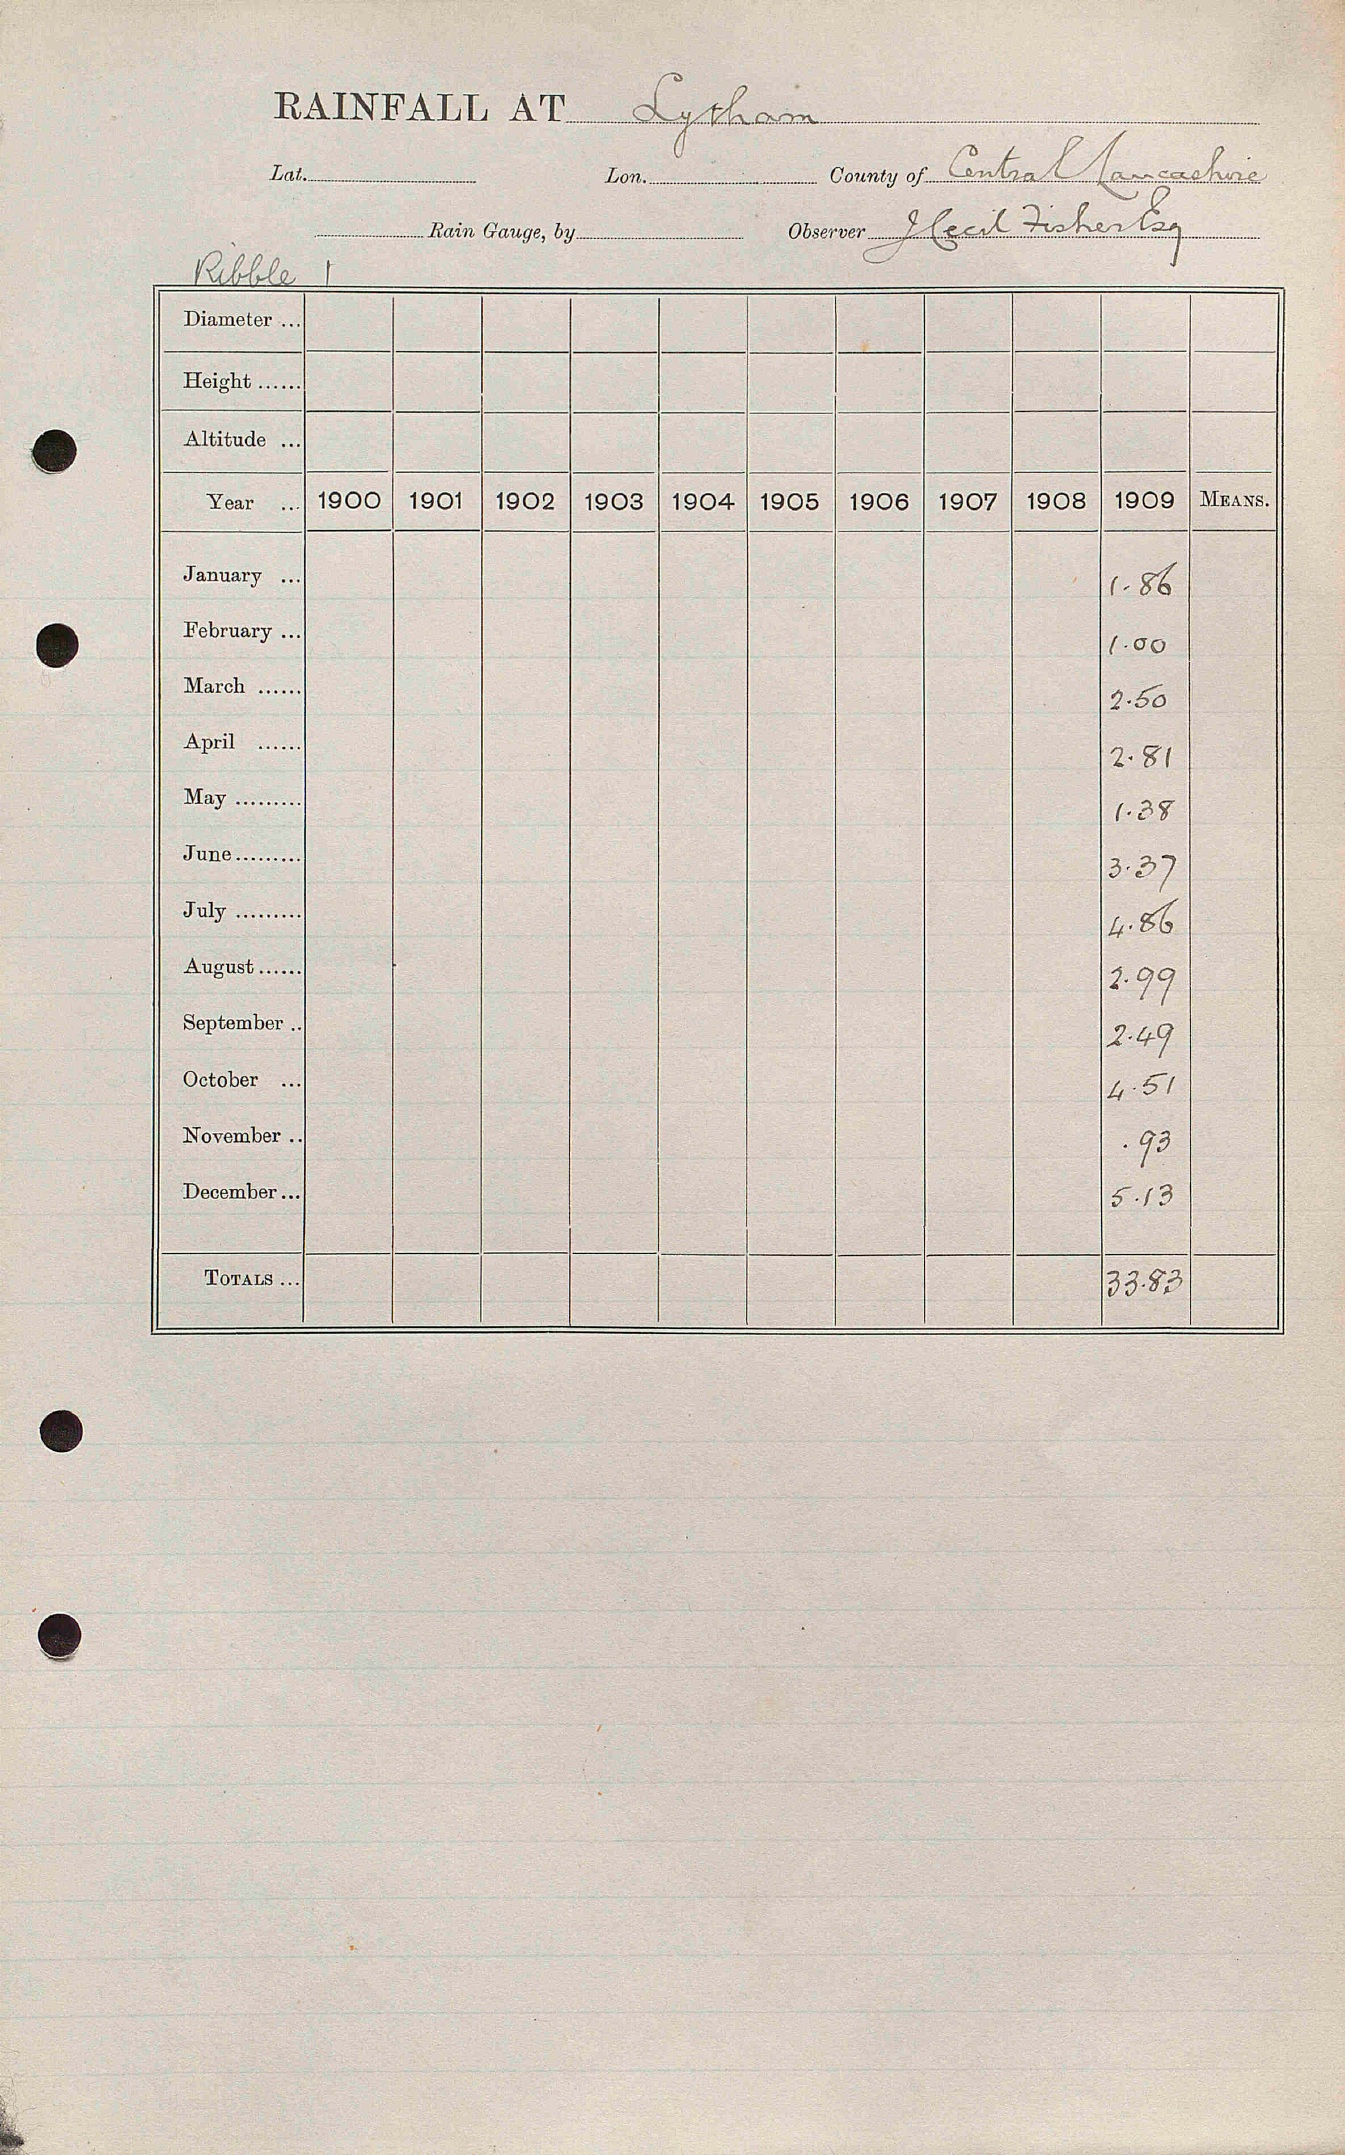 RAINFALL AT Lytham
Lat. Lon. County of Central Lancashire
Rain Gauge, by Observer J Cecil Fisher Esq
Ribble 1
Diameter ...
Height ......
Altitude ...
Year ... 1900 1901 1902 1903 1904 1905 1906 1907 1908 1909 MEANS.
January ... 1.86
February ... 1.00
March ...... 2.50
April ...... 2.81
May ......... 1.38
June ......... 3.37
July ......... 4.86
August ...... 2.99
September .. 2.49
October ... 4.51
November .. .93
December ... 5.13
TOTALS ... 33.83